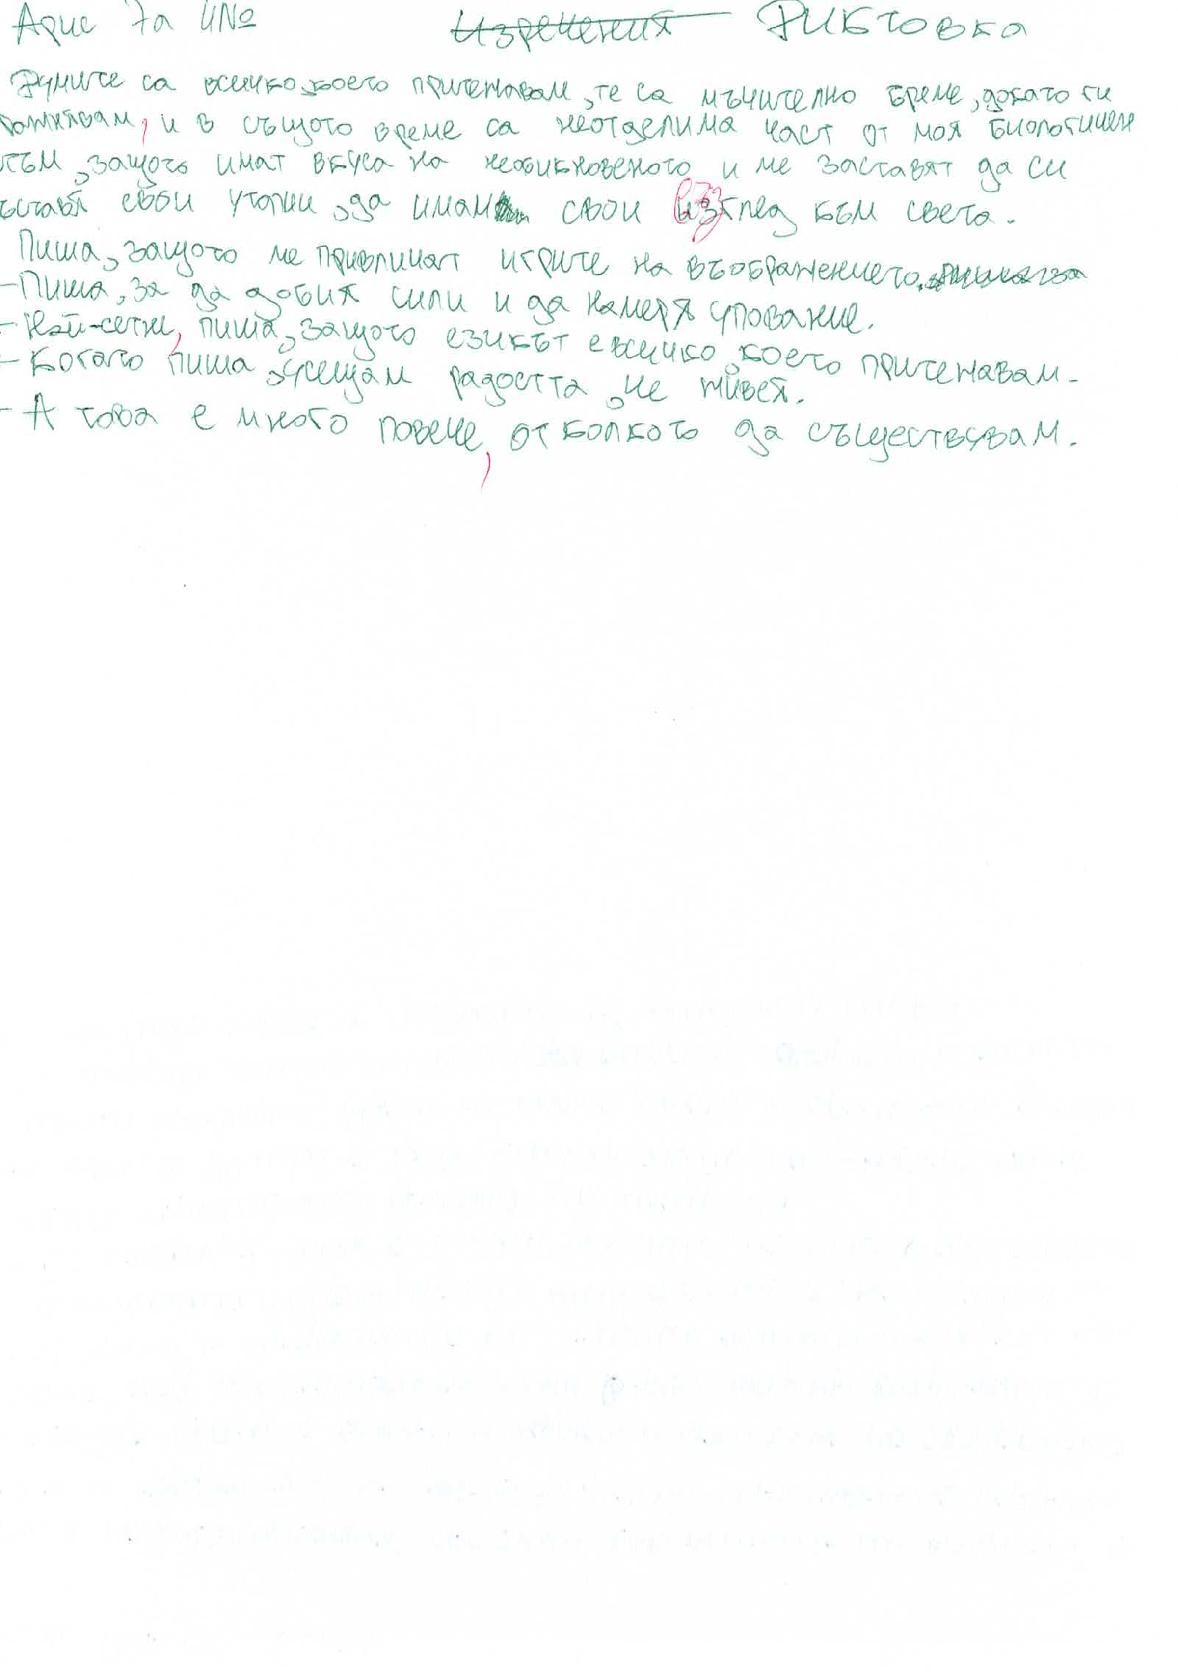 Арис 7а 4№ Изречения Диктовка
Думите са всичко, което притежавам, те са мъчително бреме, докато ги
, и в същото време са неотделима част от моя биологичен
, защото имат вкуса на необикновеното и ме заставят да си
свои утопии, да имам свои възглед към света.
Пиша, защото ме привличат игрите на въображението.
- Пиша, за да добия сили и да намеря упование.
- Най-сетне, пиша, защото езикът е всичко, което притежавам.
- Когато пиша, усещам радостта, че живея.
- А това е много повече, отколкото да съществувам.